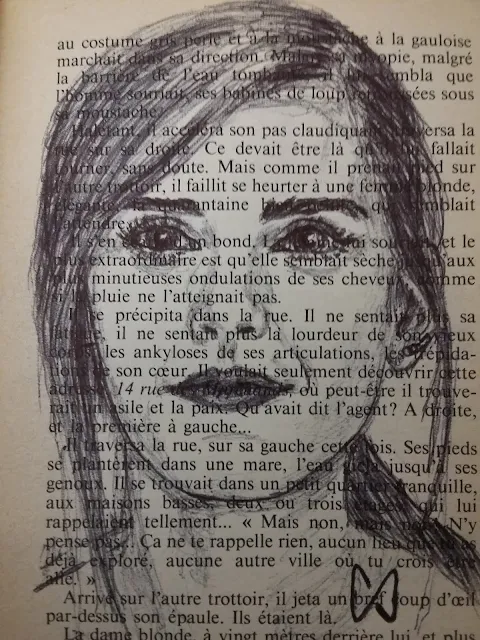 au costume gris perle et à la moustache à la gauloise
marchait dans sa direction. Malgré sa myopie, malgré
la barrière de l'eau tombante, il lui sembla que
l'homme souriait, ses babines de loup retroussées sous
sa moustache.
Haletant, il accéléra son pas claudiquant, traversa la
rue sur sa droite. Ce devait être là qu'il lui fallait
tourner, sans doute. Mais comme il prenait pied sur
l'autre trottoir, il faillit se heurter à une femme blonde,
élégante, la quarantaine bien qui semblait
l'attendre.
Il s'en d'un bond. La lui et le
plus extraordinaire est qu'elle semblait sèche jusqu'aux
plus minutieuses ondulations de ses cheveux, comme
si la pluie ne l'atteignait pas.
Il se précipita dans la rue. Il ne sentait plus sa
il ne sentait plus la lourdeur de son vieux
corps, les ankyloses de ses articulations, les trépida-
tions de son cœur. Il voulait seulement découvrir cette
adresse, 14 rue des où peut-être il trouve-
rait un asile et la paix. Qu'avait dit l'agent? A droite,
et la première à gauche...
Il traversa la rue, sur sa gauche cette fois. Ses pieds
se plantèrent dans une mare, l'eau gicla jusqu'à ses
genoux. Il se trouvait dans un petit quartier tranquille,
aux maisons basses, deux ou trois étages, qui lui
rappelaient tellement... « Mais non, mais non! N'y
pense pas... Ça ne te rappelle rien, aucun lieu que tu as
déjà exploré, aucune autre ville où tu crois être
allé. »
Arrivé sur l'autre trottoir, il jeta un bref coup d'œil
par-dessus son épaule. Ils étaient là.
La dame blonde, à vingt mètres derrière lui, et plus